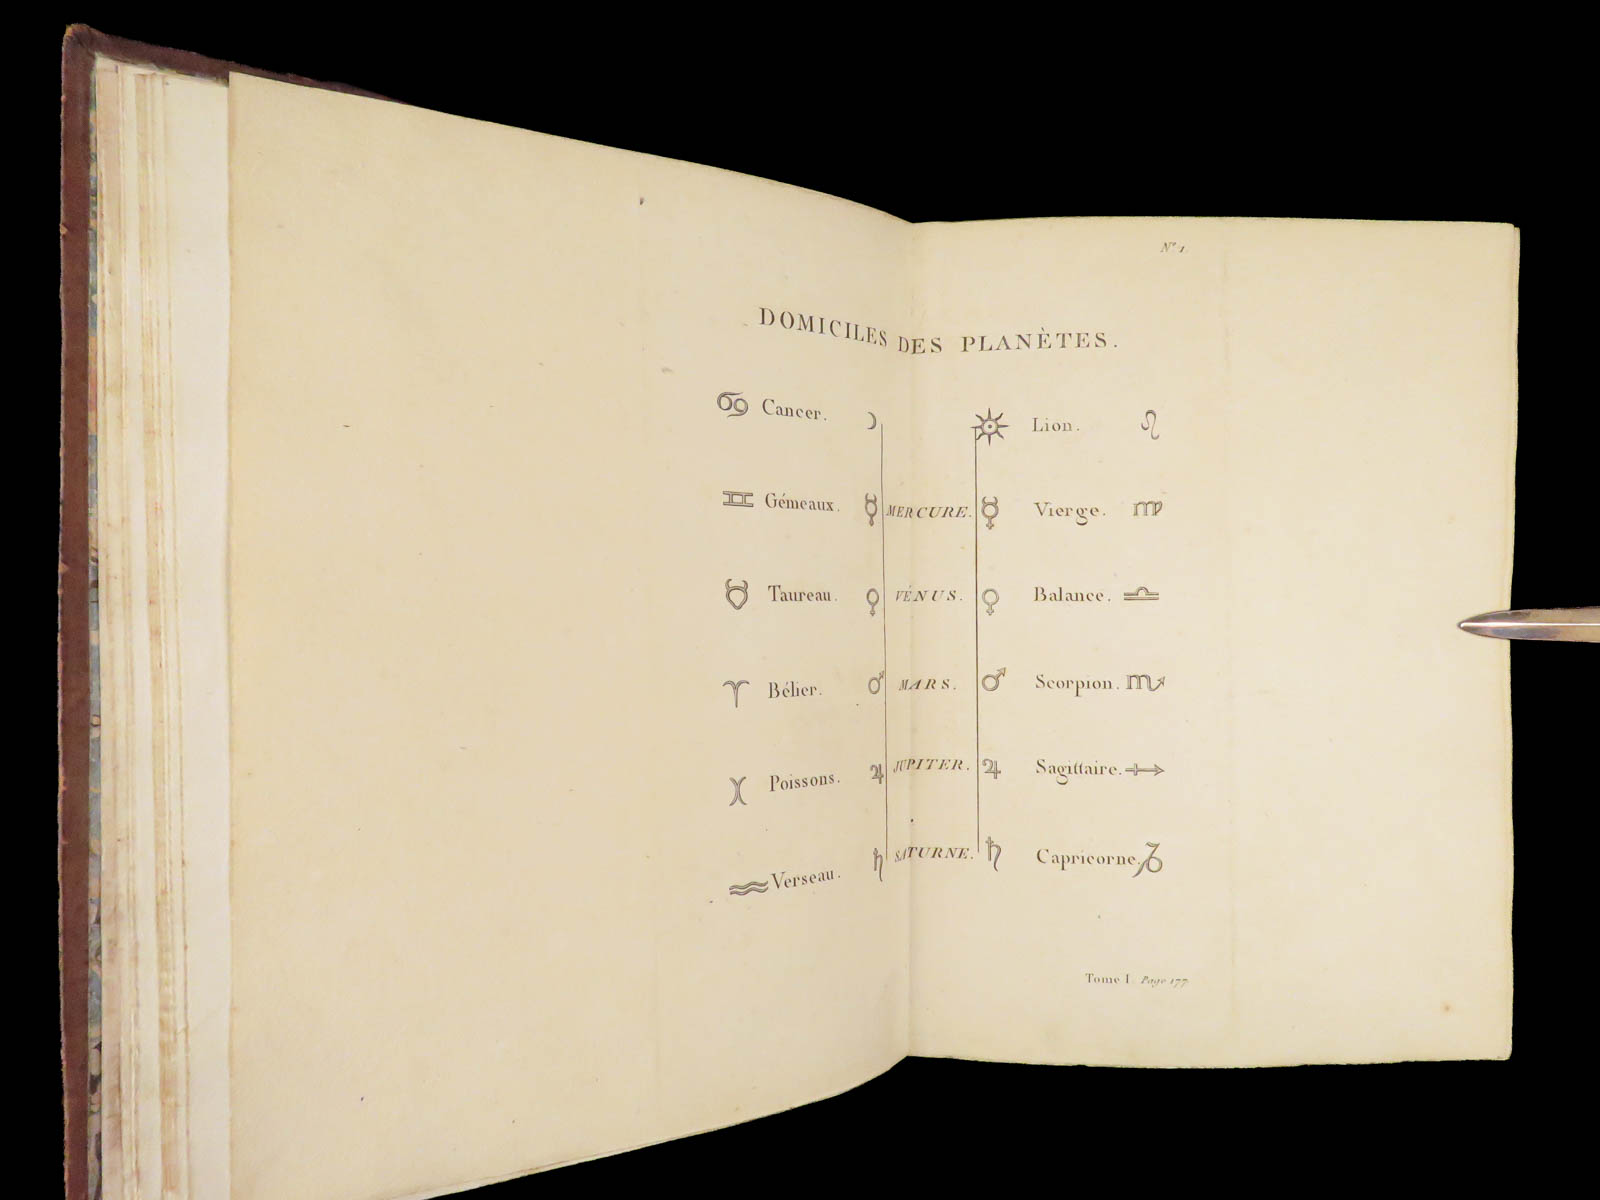 Nº 1
DOMICILES DES PLANÈTES.
♋ Cancer. ☽ ☉ Lion. ♌
♊ Gémeaux. ☿ MERCURE. ☿ Vierge. ♍
♉ Taureau. ♀ VÉNUS. ♀ Balance. ♎
♈ Bélier. ♂ MARS. ♂ Scorpion. ♏
♓ Poissons. ♃ JUPITER. ♃ Sagittaire. ♐
♒ Verseau. ♄ SATURNE. ♄ Capricorne. ♑
Tome I. Page 177